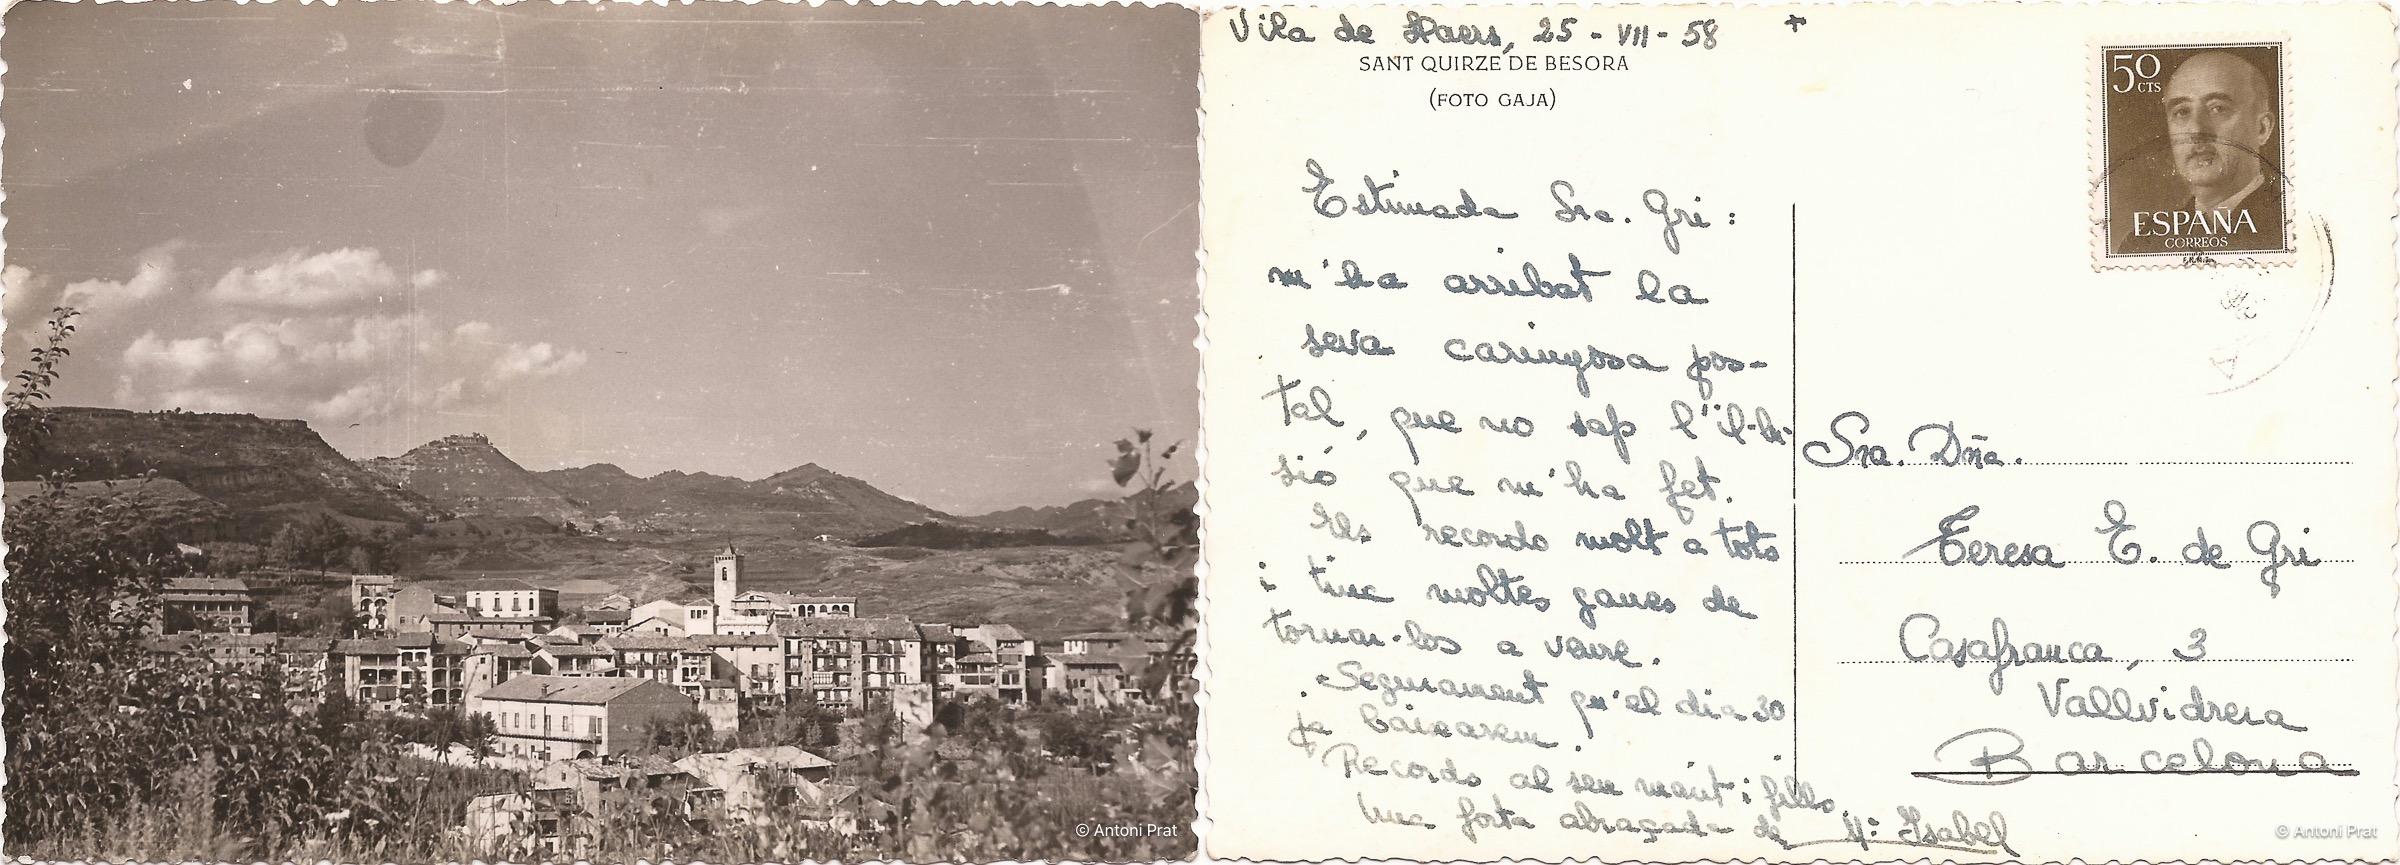 Vila de Haers, 25 - VII - 58 +
SANT QUIRZE DE BESORA
(FOTO GAJA)
Estimada Sra. Gri:
m'ha arribat la
seva carinyosa pos-
tal, que no sap l'il·lu-
sió que m'ha fet.
Els recordo molt a tots
i tinc moltes ganes de
tornar-los a veure.
Segurament qu'el dia 30
ja baixarem.
Records al seu marit i fills
Una forta abraçada de Mª Isabel
50
CTS
ESPAÑA
CORREOS
Sra. Dña.
Teresa E. de Gri
Casafranca, 3
Vallvidrera
Barcelona
© Antoni Prat
© Antoni Prat